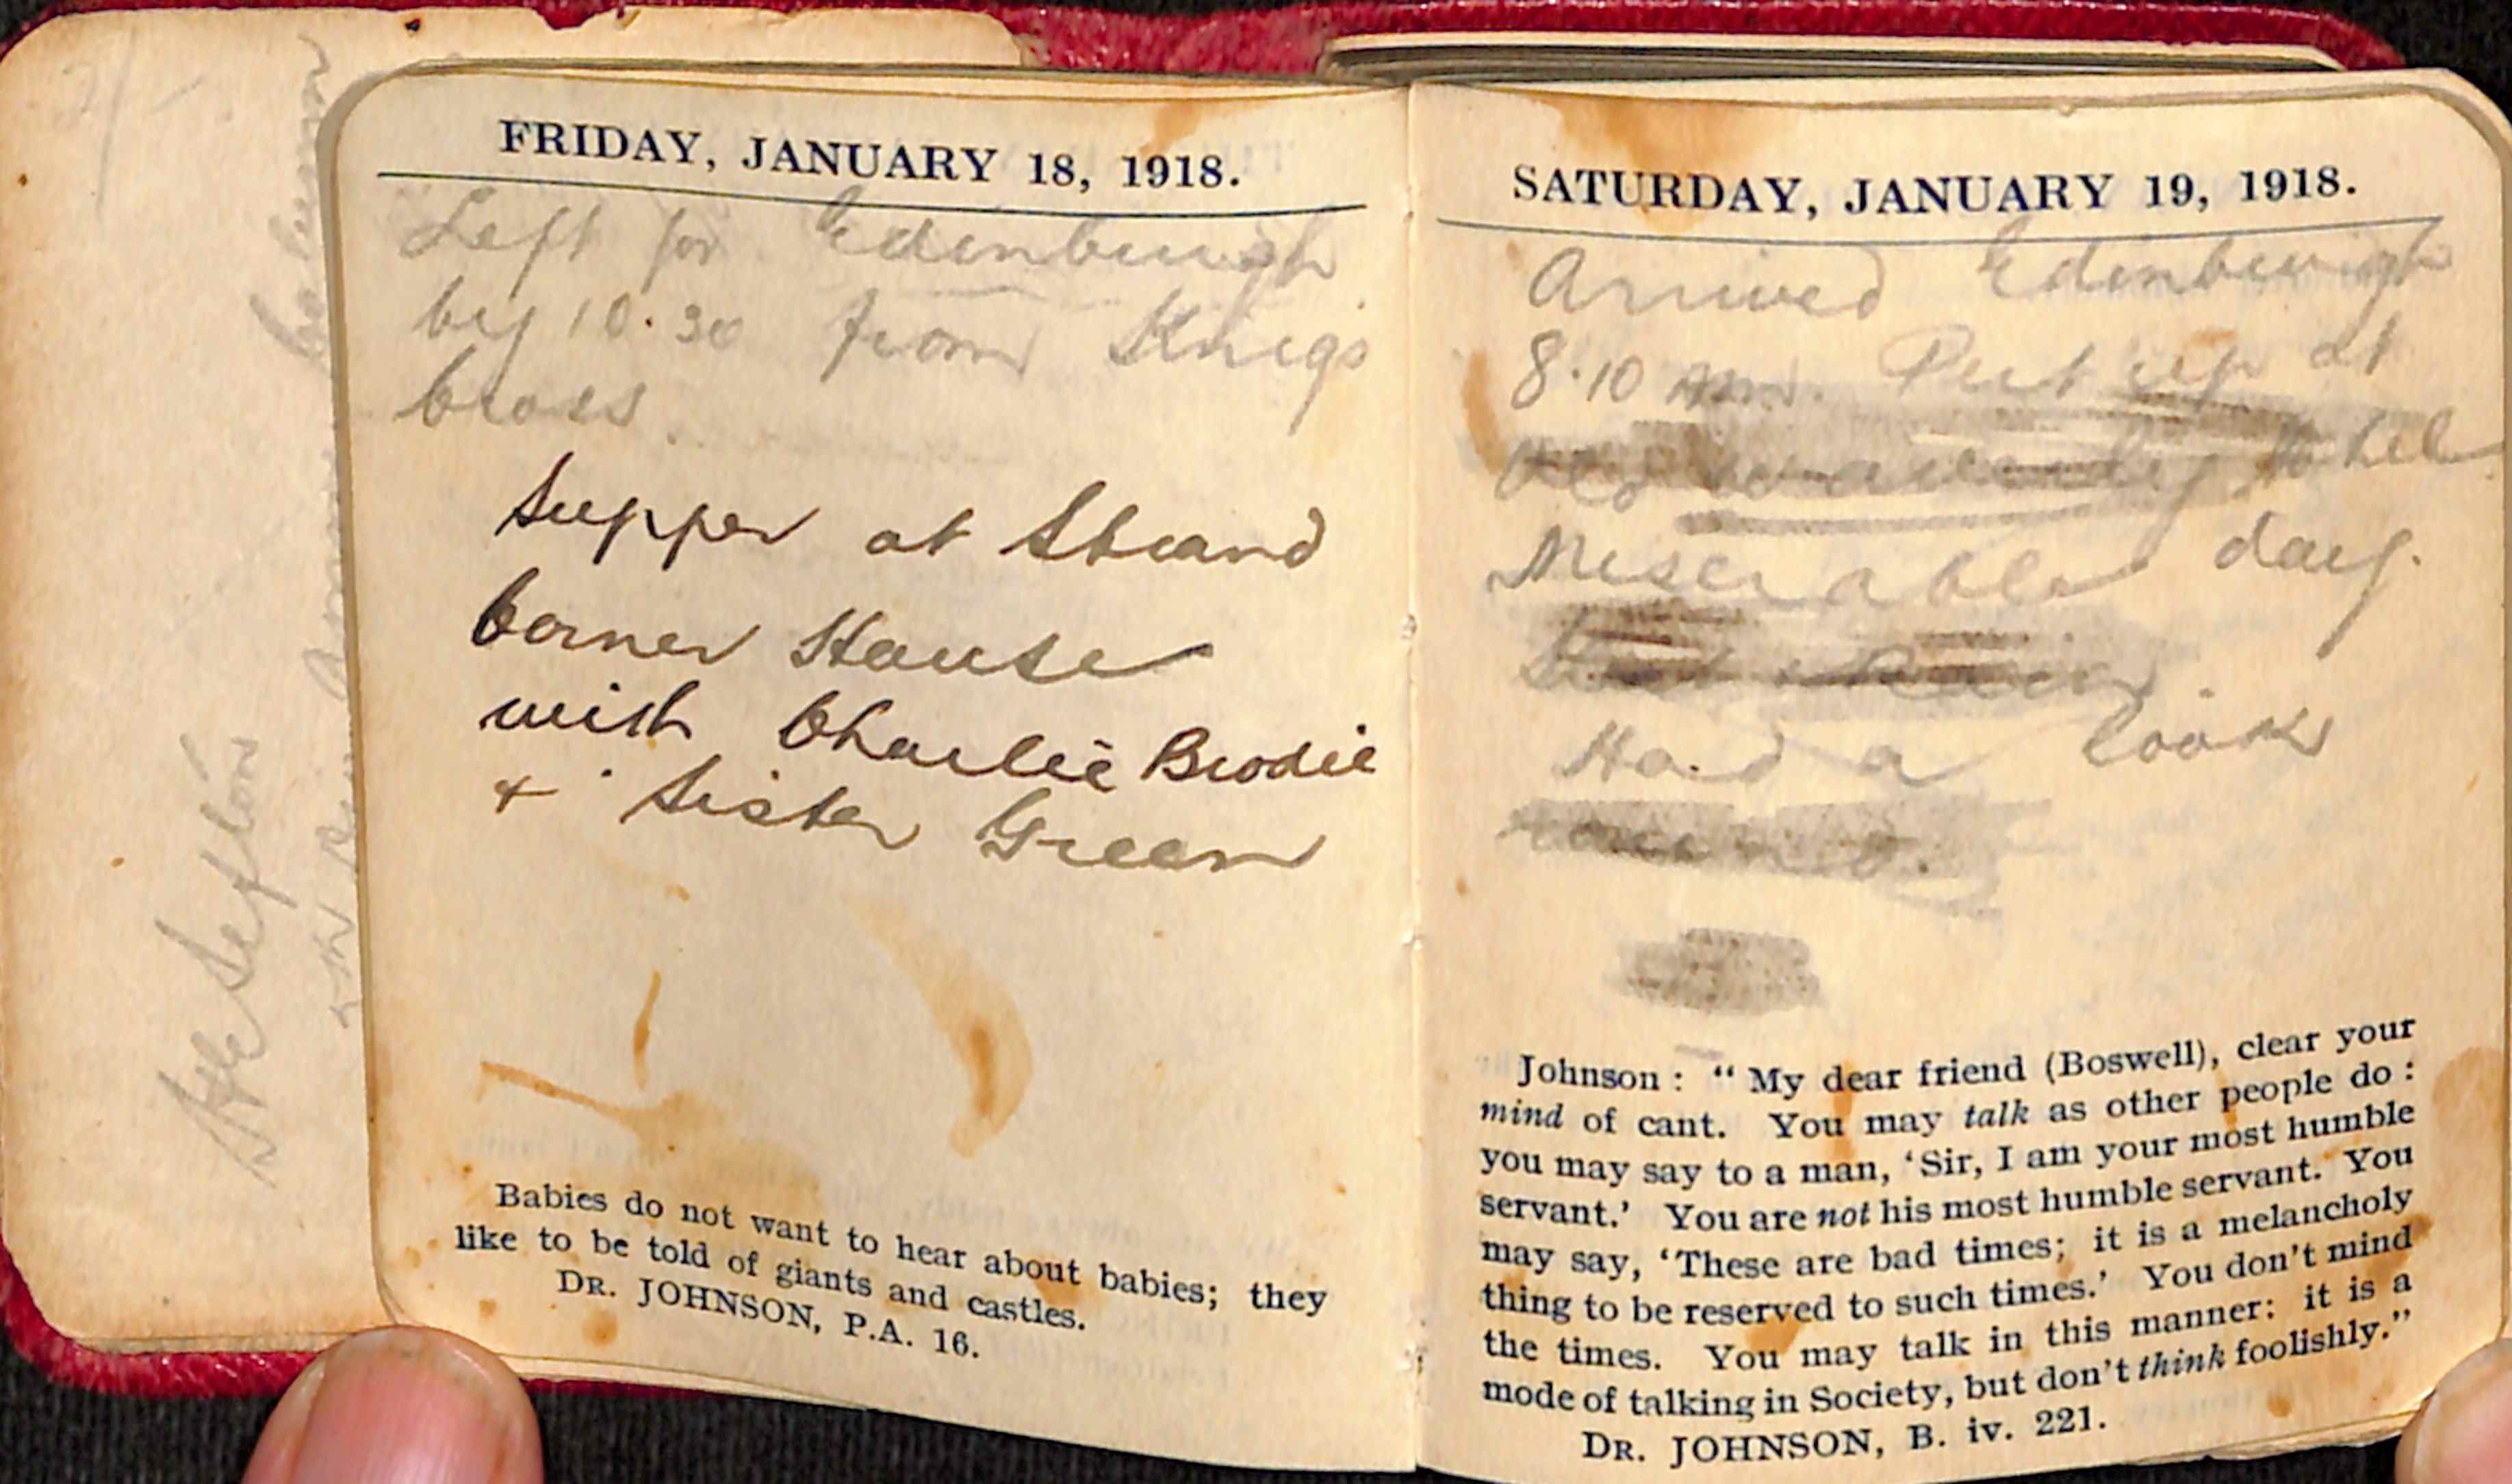 Ste Sefton
FRIDAY, JANUARY 18, 1918.
Left for Edinburgh
by 10.30 from Kings
Cross.
Supper at Strand
Corner House
with Charlie Brodie
& Sister Green
Babies do not want to hear about babies; they
like to be told of giants and castles.
DR. JOHNSON, P.A. 16.
SATURDAY, JANUARY 19, 1918.
Arrived Edinburgh
8.10 am. Put up at
Old Waverley Hotel
Miserable day.
& Rain.
Had a look
round.
Johnson : “ My dear friend (Boswell), clear your
mind of cant. You may talk as other people do :
you may say to a man, ‘Sir, I am your most humble
servant.’ You are not his most humble servant. You
may say, ‘These are bad times; it is a melancholy
thing to be reserved to such times.’ You don’t mind
the times. You may talk in this manner: it is a
mode of talking in Society, but don’t think foolishly.”
DR. JOHNSON, B. iv. 221.